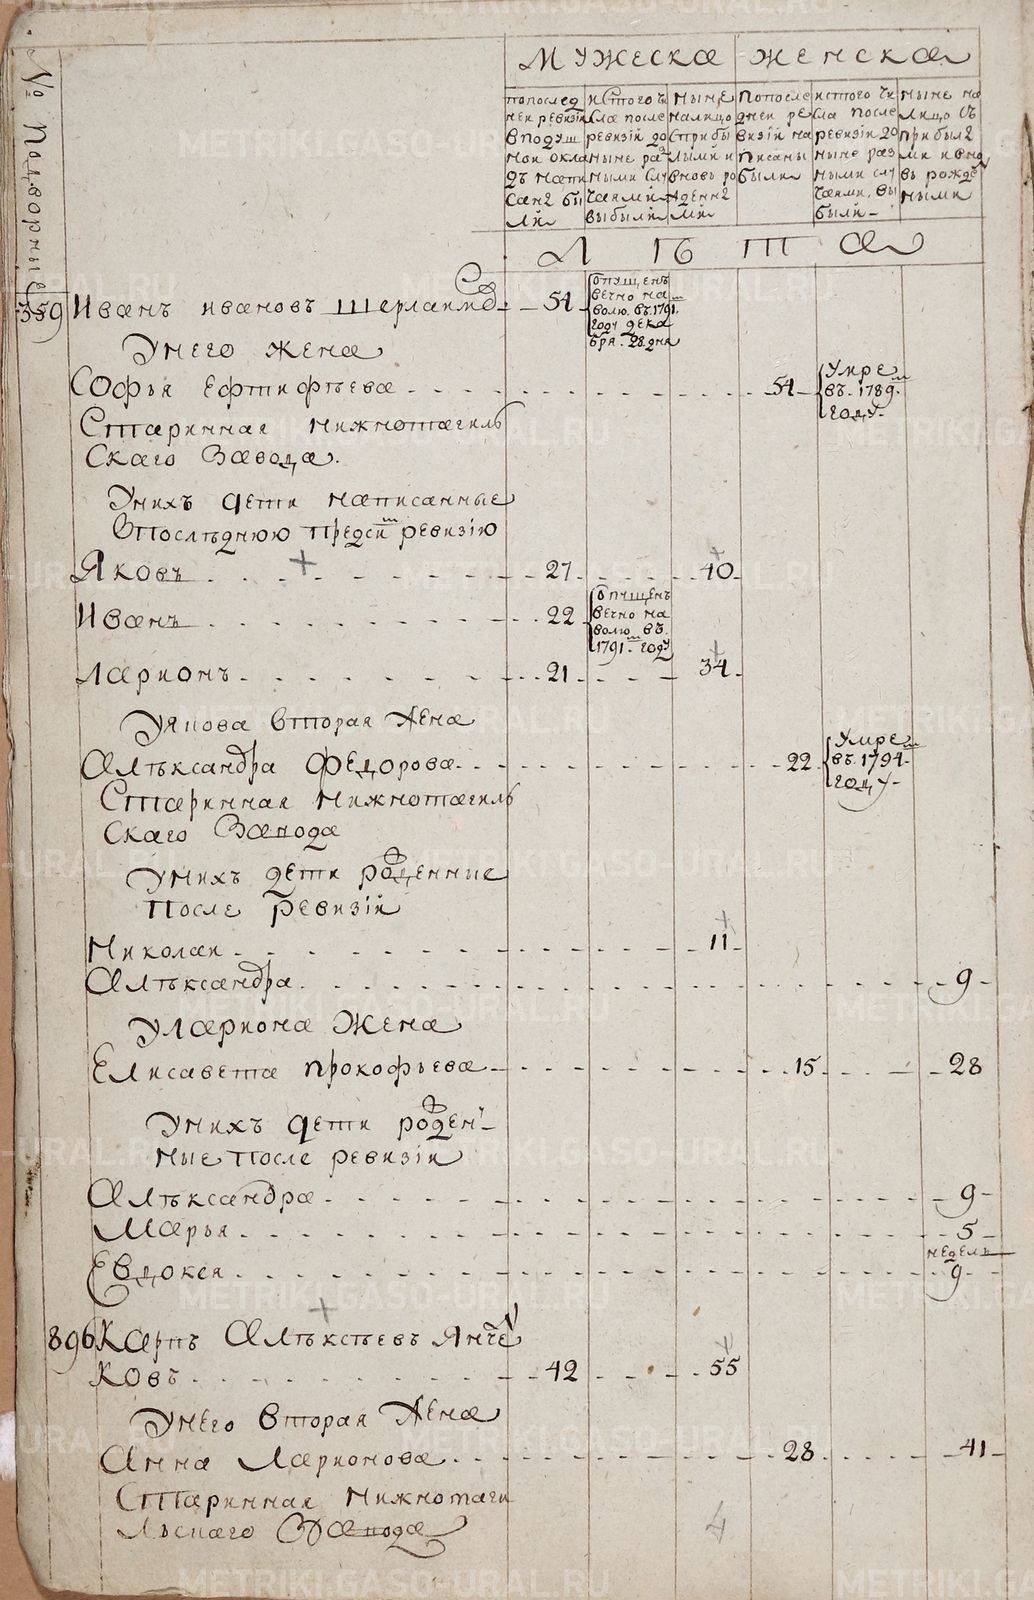 № Подворные
Мужеска
Женска
по послед
ней ревизїи
в подуш
ном окла
дъ напи
сан были
ис того чи
сла после
ревизїй до
ныне раз
ными слу
чаями
выбыли
ныне
налицо
с прибы
лыми и
вновь ро
жденн
ми
по после
дней ре
визїй на
писаны
были
ис того чи
сла после
ревизїи до
ныне раз
ными слу
чаями вы
были
ныне на
лицо съ
прибыл
ми и вно
въ рожде
ными
Л ѣ т а
359 Иванъ ивановъ Шерлаимо 54 отпущенъ
вечно на
волю въ 1791м
году дека
бря 28 дня
У него жена
Софья Ефтифѣева 54 Умре
въ 1789м
году
Старинная нижнотагиль
скаго Завода
У нихъ дети написанные
в последнюю предсш ревизїю
Яковъ 27 40
Иванъ 22 отпущенъ
вечно на
волю въ
1791м году
Ларионъ 21 34
У якова вторая Жена
Алѣксандра Федорова 22 Умре
въ 1794м
году
Старинная нижнотагиль
скаго Завода
У нихъ дети рожденние
после ревизїй
Николаи 11
Алѣксандра 9
У лариона Жена
Елисавета прокофьева 15 28
У нихъ дети рожден
ные после ревизїи
Алѣксандра 9
Марья 5
недель
Евдокея 9
896 Карпъ Алѣксѣевъ Янче
ковъ 42 55
У него вторая Жена
Анна Ларионова 28 41
Старинная нижнотаги
льскаго Завода
4